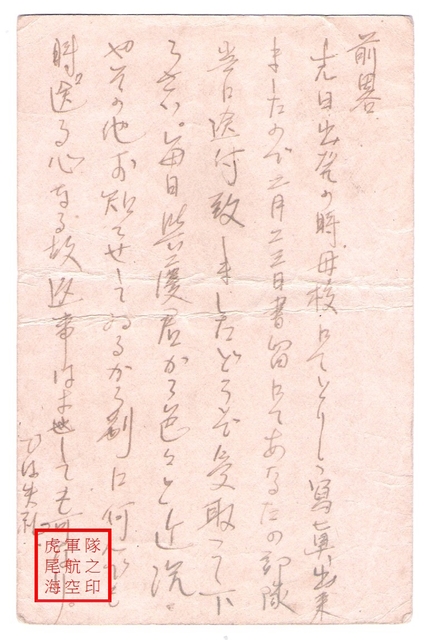 前畧
先日出発の時、母校にてとりし寫真出来
ましたので二月二三日書留にてあなたの部隊
当に送付致しましたどうぞ受取って下
さい。毎日 君から色々と近況
やその他お知らせしてゐるから別に何
時 送る心なる故返事は
では失礼
虎尾海
軍航空
隊之印